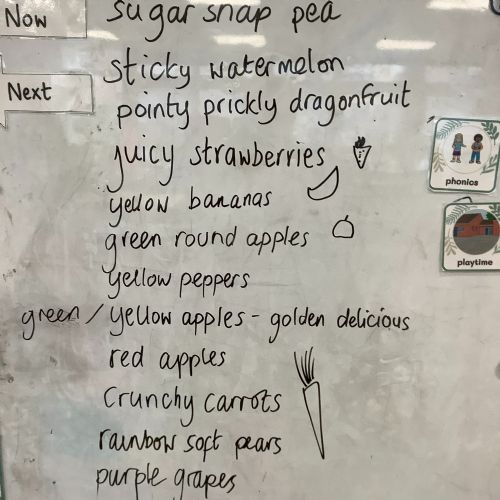 Now
sugar snap pea
sticky watermelon
Next
pointy prickly dragonfruit
juicy strawberries
phonics
yellow bananas
green round apples
playtime
yellow peppers
green / yellow apples - golden delicious
red apples
Crunchy carrots
rainbow soft pears
purple grapes